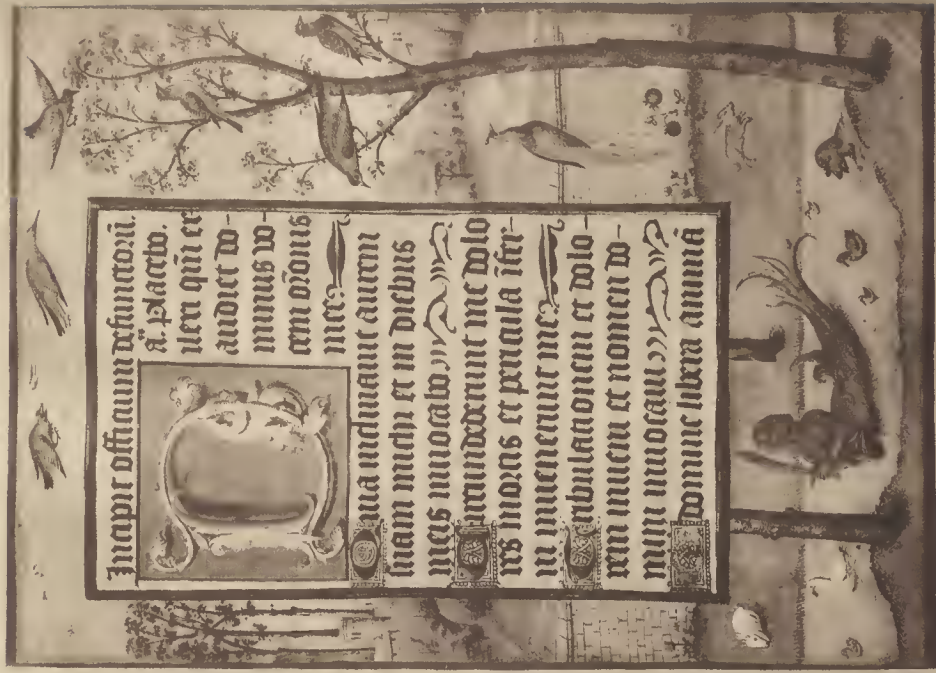 Incipit officium defunctorū.
ā. Placebo.
Dilexi qm̄ ex
audiet do-
minus vo-
cem or̄onis
mee
Quia inclinauit aurem
suam michi et in diebus
meis inuocabo
Circundederunt me dolo
res mortis et pericula īfer-
ni inuenerunt me
Tribulationem et dolo-
rem inueni et nomen do-
mini inuocaui
O domine libera animā